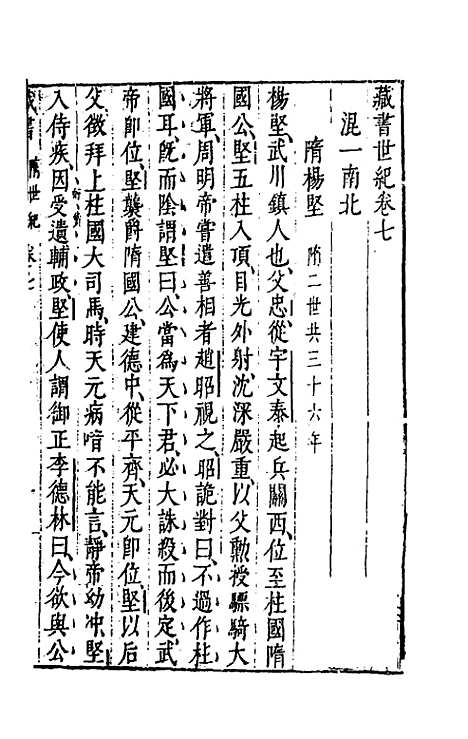 藏書世紀卷七
混一南北
隋楊堅 隋二世共三十六年
楊堅武川鎮人也父忠從宇文泰起兵關西位至柱國隋
國公堅五柱入項目光外射沈深嚴重以父勲授驃騎大
將軍周明帝嘗遣善相者趙昭視之昭詭對曰不過作柱
國耳旣而陰謂堅曰公當為天下君必大誅殺而後定武
帝卽位堅襲爵隋國公建德中從平齊天元卽位堅以后
父徵拜上柱國大司馬時天元病喑不能言靜帝幼冲堅
入侍疾因受遺輔政堅使人謂御正李德林曰今欲與公
藏書 隋世紀 卷七